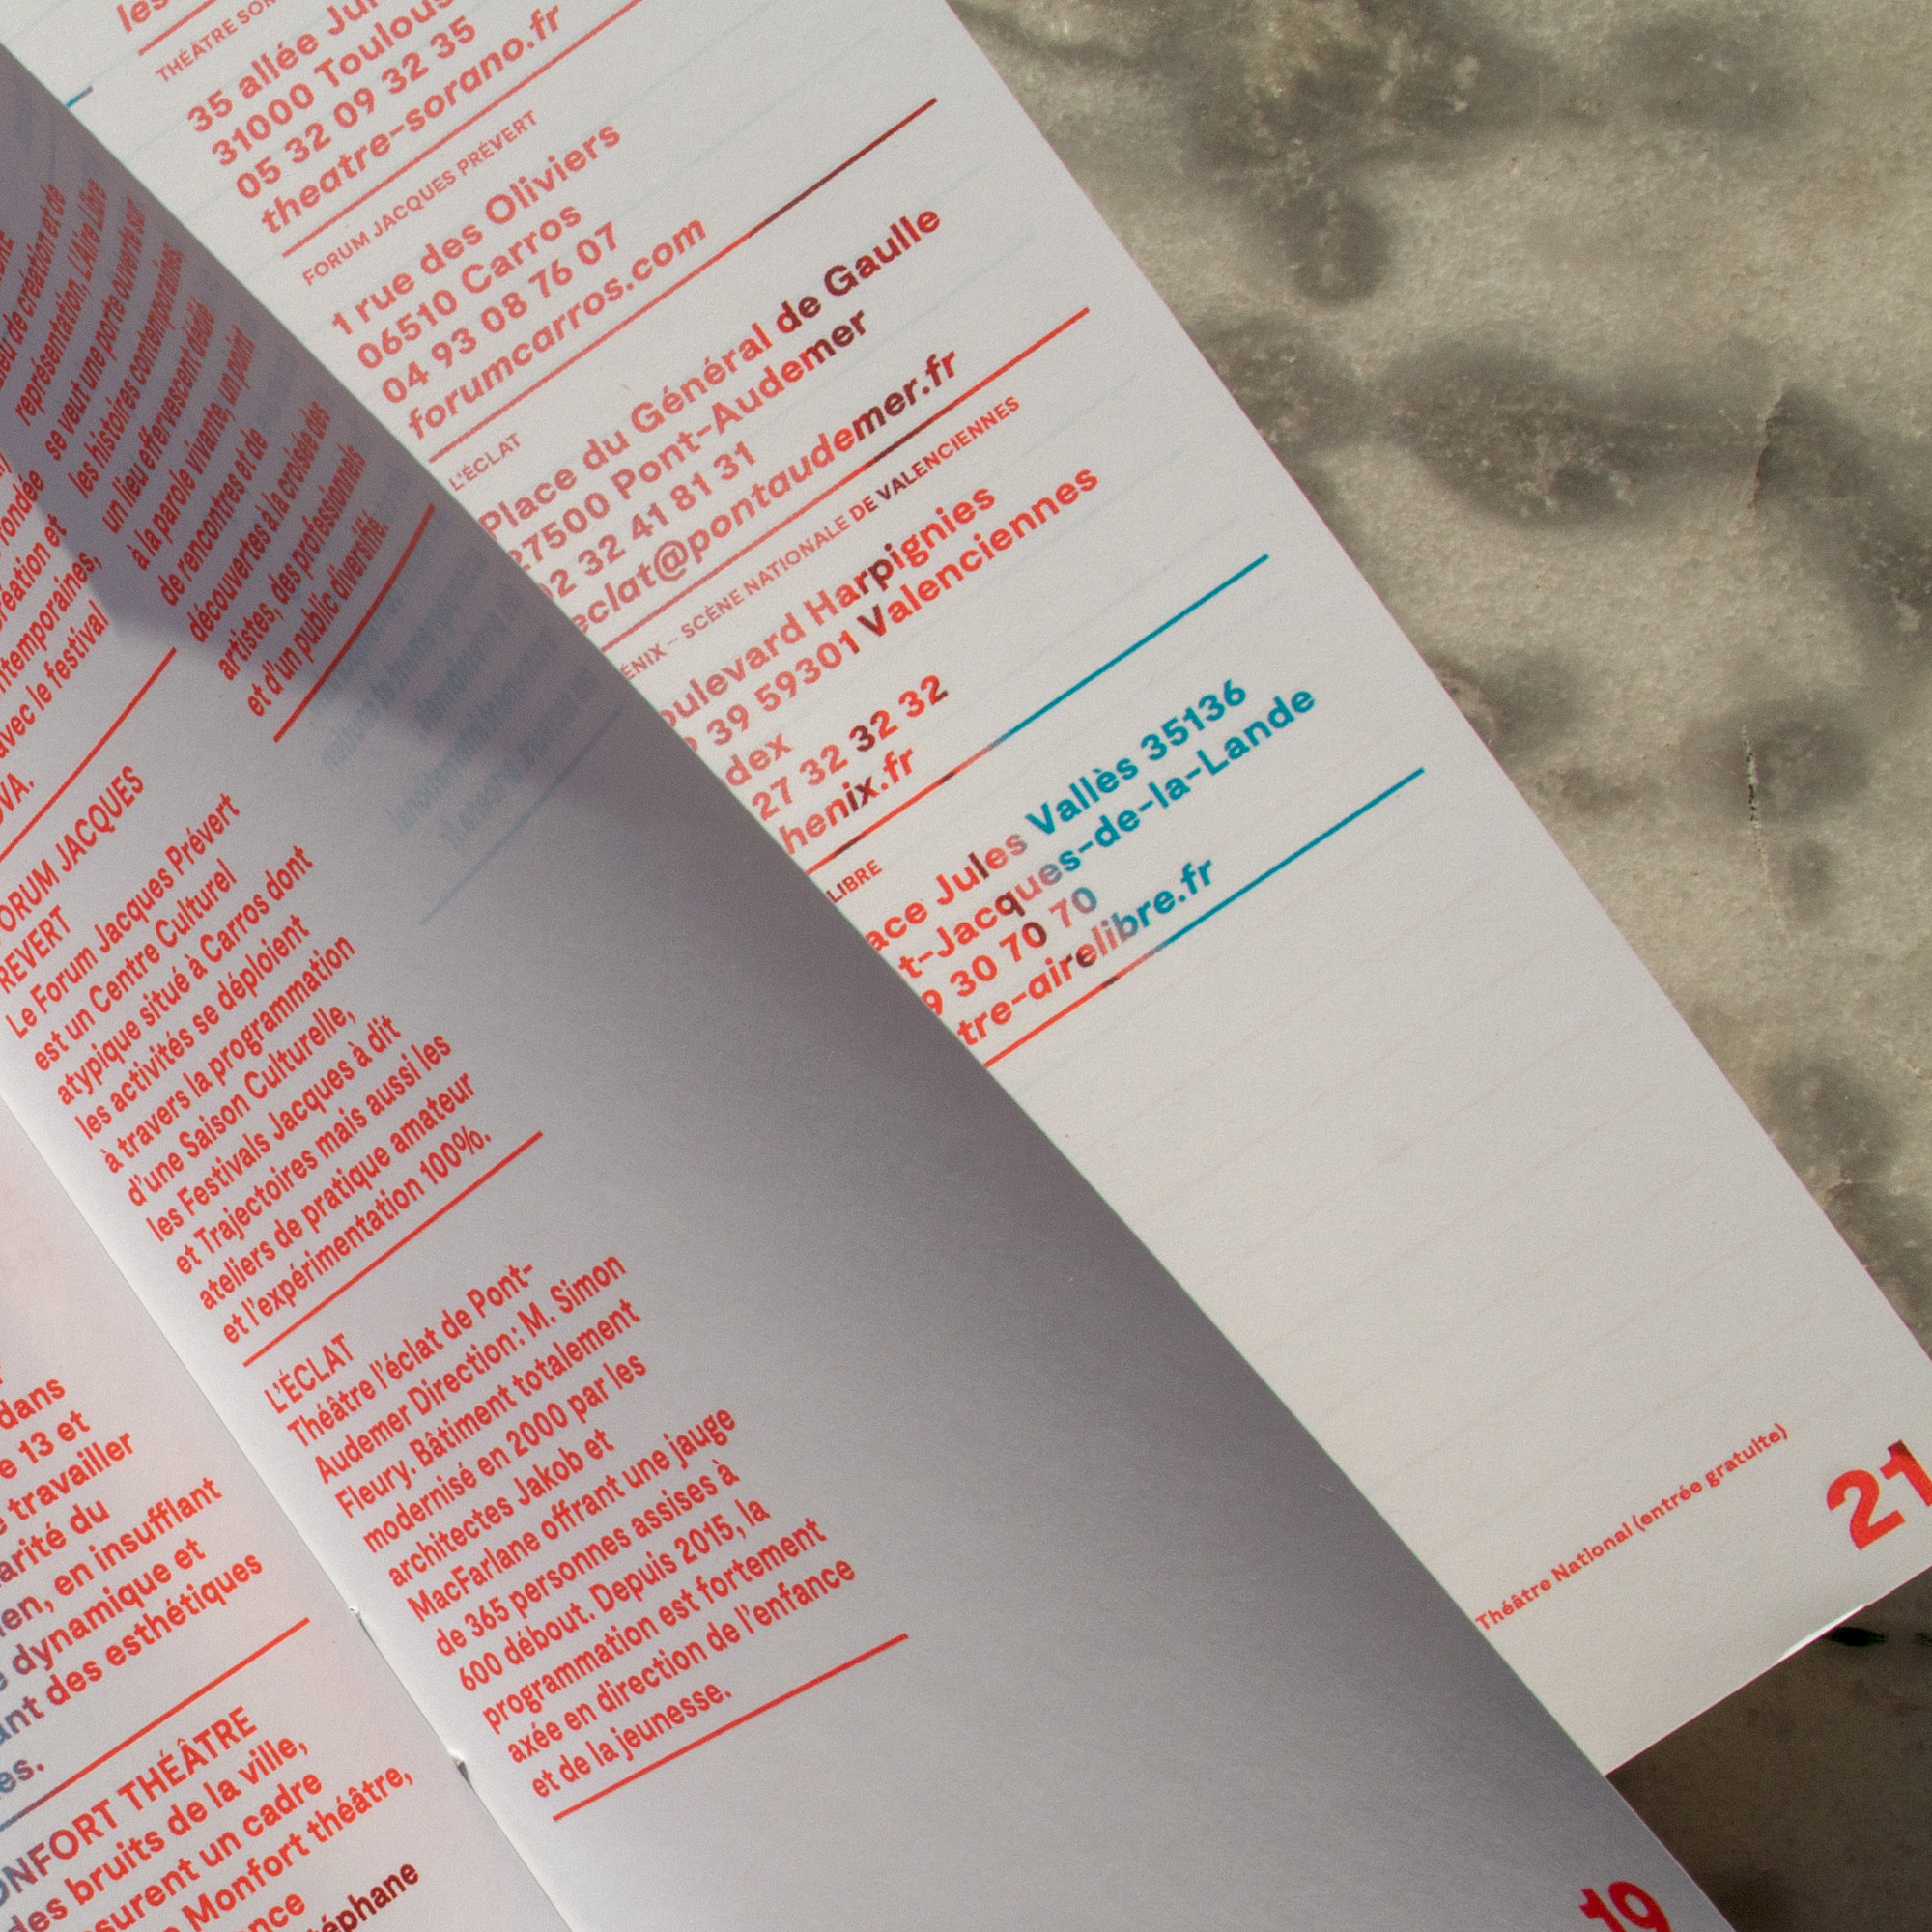 THÉÂTRE
35 allée
31000
05 32 09 32 35
theatre-sorano.fr
FORUM JACQUES PRÉVERT
1 rue des Oliviers
06510 Carros
04 93 08 76 07
forumcarros.com
L'ÉCLAT
Place du Général de Gaulle
27500 Pont-Audemer
02 32 41 81 31
eclat@pontaudemer.fr
SCÈNE NATIONALE DE VALENCIENNES
Harpignies
39 59301 Valenciennes
27 32 32 32
LIBRE
Jules Vallès 35136
t-Jacques-de-la-Lande
30 70 70
tre-airelibre.fr
Théâtre National (entrée gratuite)
21
de création et de
représentation, L'Aire Libre
se veut une porte ouverte sur
les histoires contemporaines,
un lieu effervescent dédié
à la parole vivante, un point
de rencontres et de
découvertes à la croisée des
artistes, des professionnels
et d'un public diversifié.
JACQUES
Le Forum Jacques Prévert
est un Centre Culturel
atypique situé à Carros dont
les activités se déploient
à travers la programmation
d'une Saison Culturelle,
les Festivals Jacques à dit
et Trajectoires mais aussi les
ateliers de pratique amateur
et l'expérimentation 100%.
L'ÉCLAT
Théâtre l'éclat de Pont-
Audemer Direction: M. Simon
Fleury. Bâtiment totalement
modernisé en 2000 par les
architectes Jakob et
MacFarlane offrant une jauge
de 365 personnes assises à
600 débout. Depuis 2015, la
programmation est fortement
axée en direction de l'enfance
et de la jeunesse.
19
et
avec le festival
dans
13 et
travailler
du
en insufflant
dynamique et
des esthétiques
THÉÂTRE
des bruits de la ville,
un cadre
Monfort théâtre,